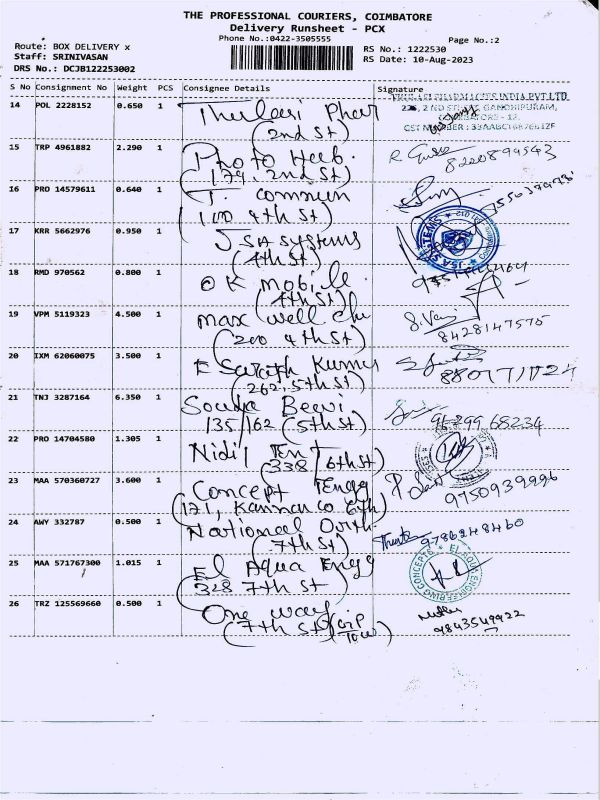 THE PROFESSIONAL COURIERS, COIMBATORE
Delivery Runsheet - PCX
Phone No.:0422-3505555
Page No.:2
Route: BOX DELIVERY x
Staff: SRINIVASAN
DRS No.: DCJB122253002
RS No.: 1222530
RS Date: 10-Aug-2023
S No Consignment No Weight PCS Consignee Details Signature
14 POL 2228152 0.650 1 Thulasi Phar
(2nd St)
GANDHIPURAM,
15 TRP 4961882 2.290 1 Photo Heeb.
(179, 2nd St)
8220899543
16 PRO 14579611 0.640 1 T. commun
(100 4th St)
17 KRR 5662976 0.950 1 JSA systems
(4th St)
JSA SYSTEMS
18 RMD 970562 0.800 1 OK mobile
(4th St)
19 VPM 5119323 4.500 1 max well
(200 4th St)
8428147575
20 IXM 62060075 3.500 1 E Sarath Kumar
(262, 5th St)
21 TNJ 3287164 6.350 1 Beevi
135/162 (5th St)
68234
22 PRO 14704580 1.305 1 Nidil
(338/6th St)
23 MAA 570360727 3.600 1 Concept Tengg
(171, Kannan co
9750939996
24 AWY 332787 0.500 1 National Orth.
(7th St)
9786248460
25 MAA 571767300 1.015 1 El Aqua Engg
(328 7th St)
EL AQUA ENGINEERING CONCEPTS
26 TRZ 125569660 0.500 1 One way
(7th St)
9843549922